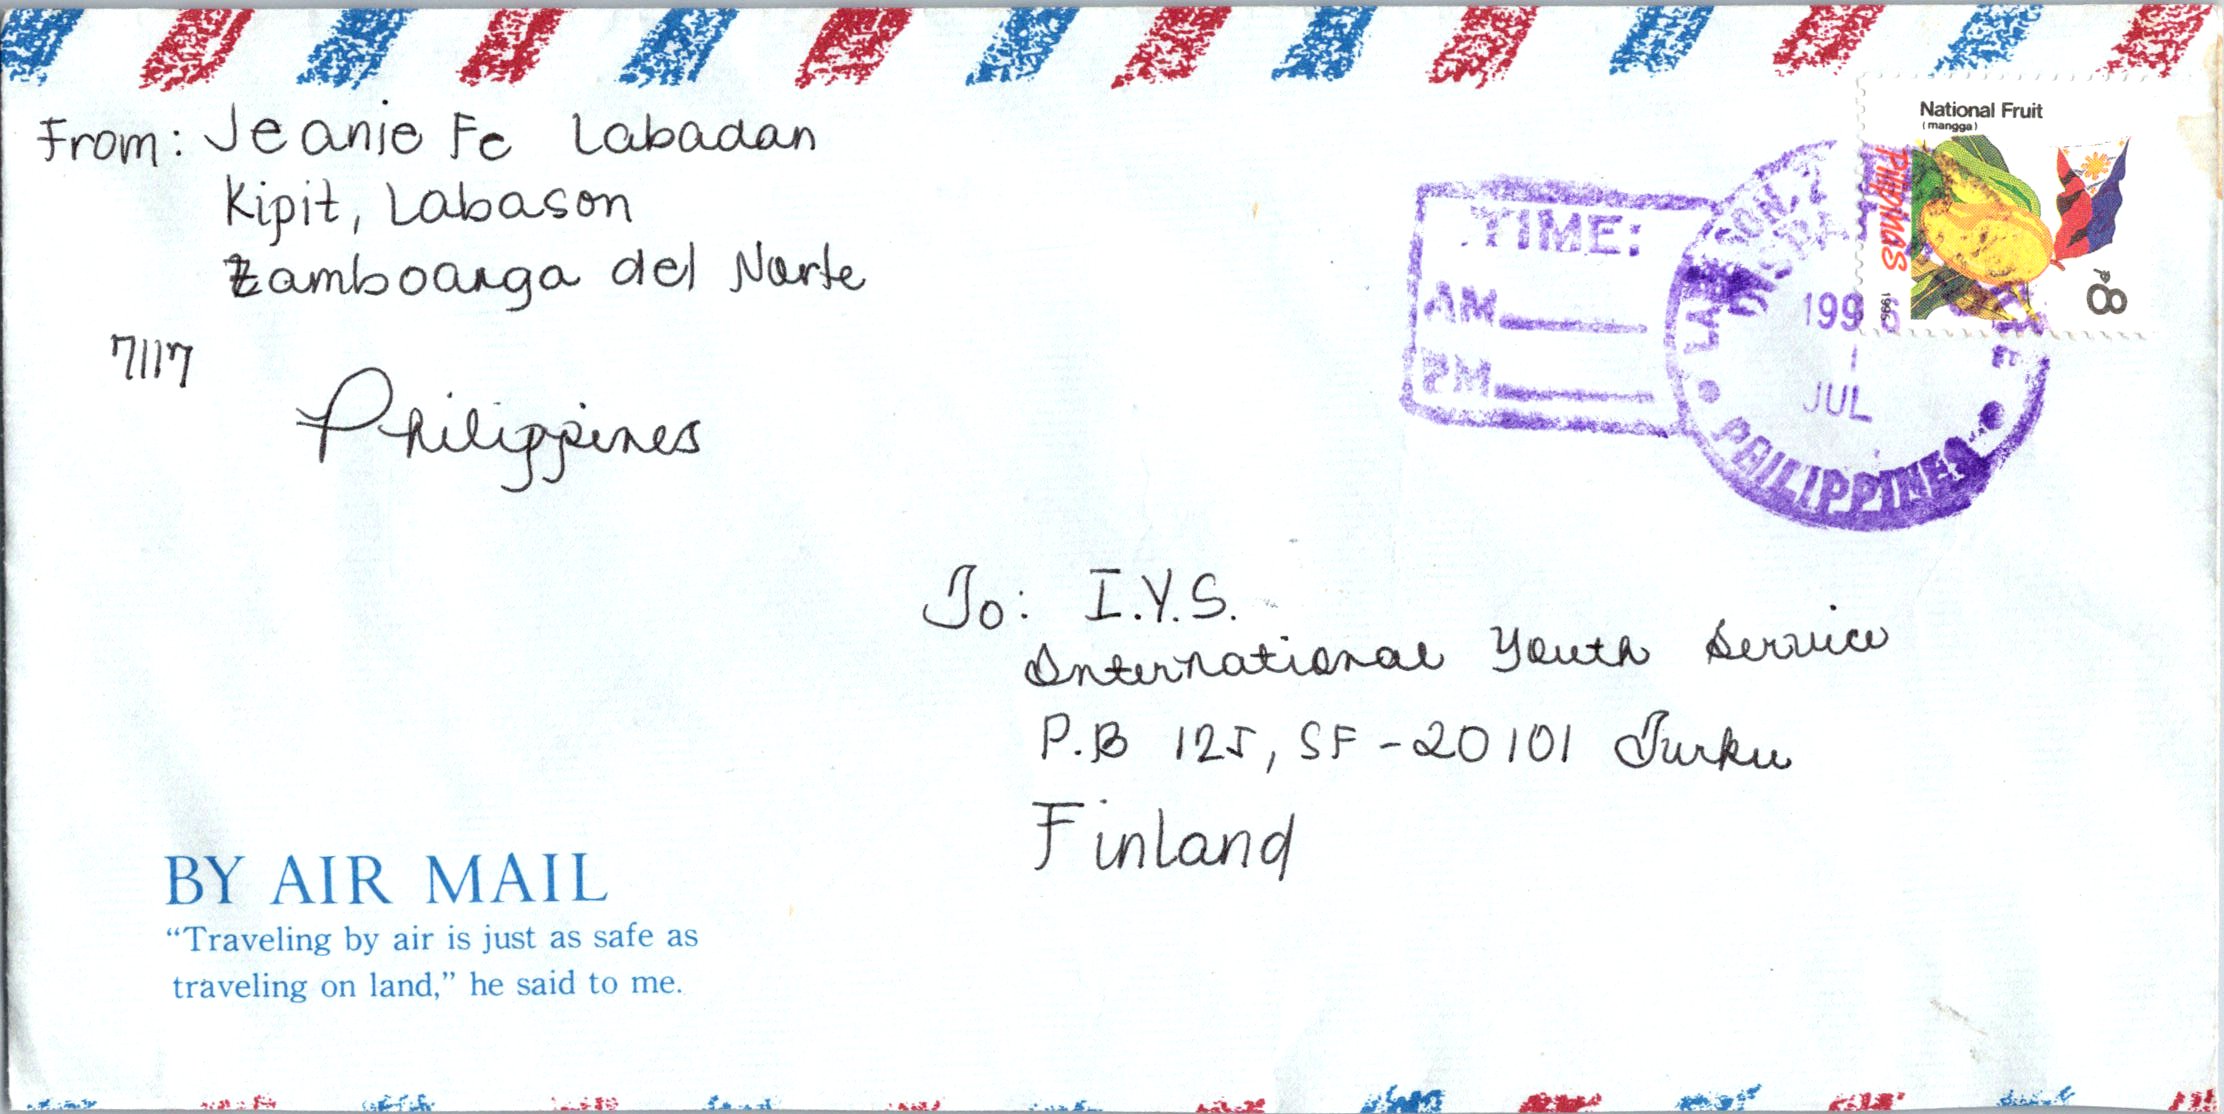 From: Jeanie Fe Labadan
Kipit, Labason
Zamboanga del Norte
7117
Philippines
National Fruit
(mangga)
PILIPINAS
1996
P8
TIME:
AM
PM
1996
1
JUL
PHILIPPINES
To: I.Y.S.
International Youth Service
P.B 125, SF-20101 Turku
Finland
BY AIR MAIL
“Traveling by air is just as safe as
traveling on land,” he said to me.